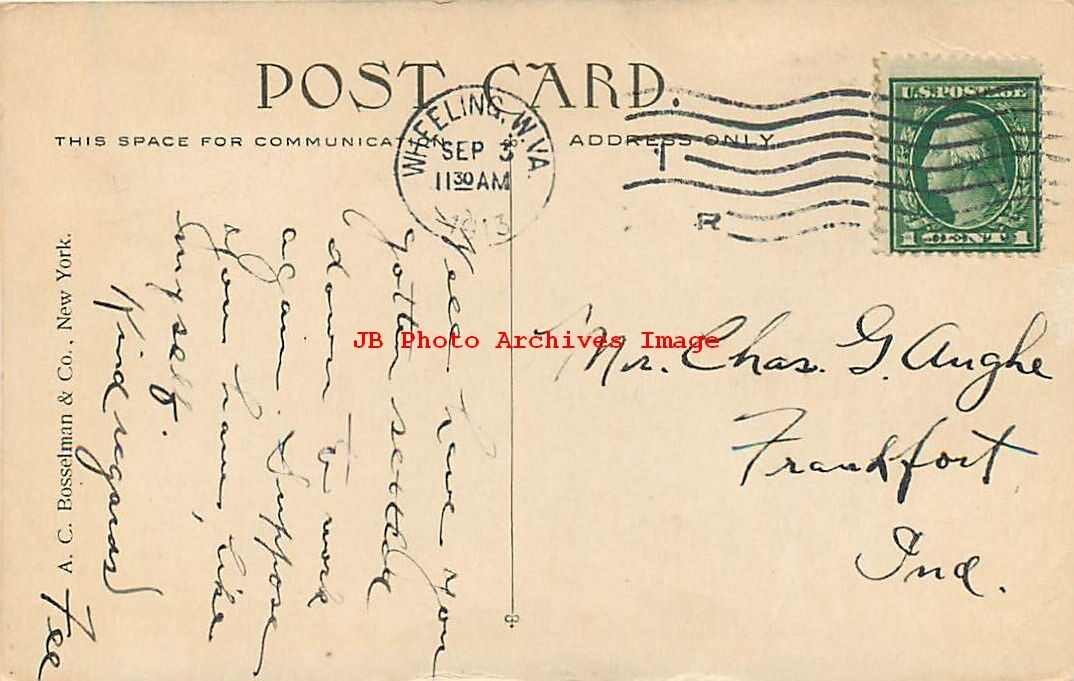 POST CARD.
THIS SPACE FOR COMMUNICATION
ADDRESS ONLY
WHEELING, W.VA.
SEP 3
11 30 AM
1913
T
R
U.S. POSTAGE
1 CENT 1
JB Photo Archives Image
A. C. Bosselman & Co., New York.
Well have you
gotten settled
down to work
again. Suppose
you have, like
myself.
Kind regards
Mr. Chas. G. Aughe
Frankfort
Ind.